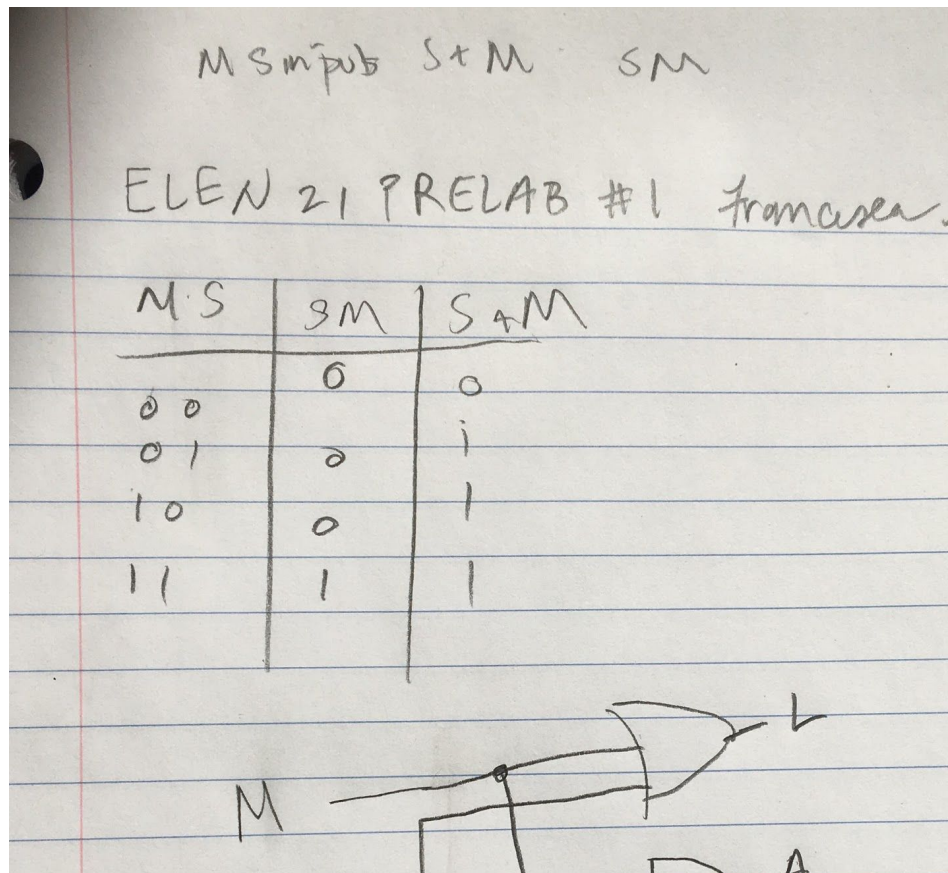 M S input S+M SM
ELEN 21 PRELAB #1 Francisca
M S SM S+M
0 0 0 0
0 1 0 1
1 0 0 1
1 1 1 1
L
M
A